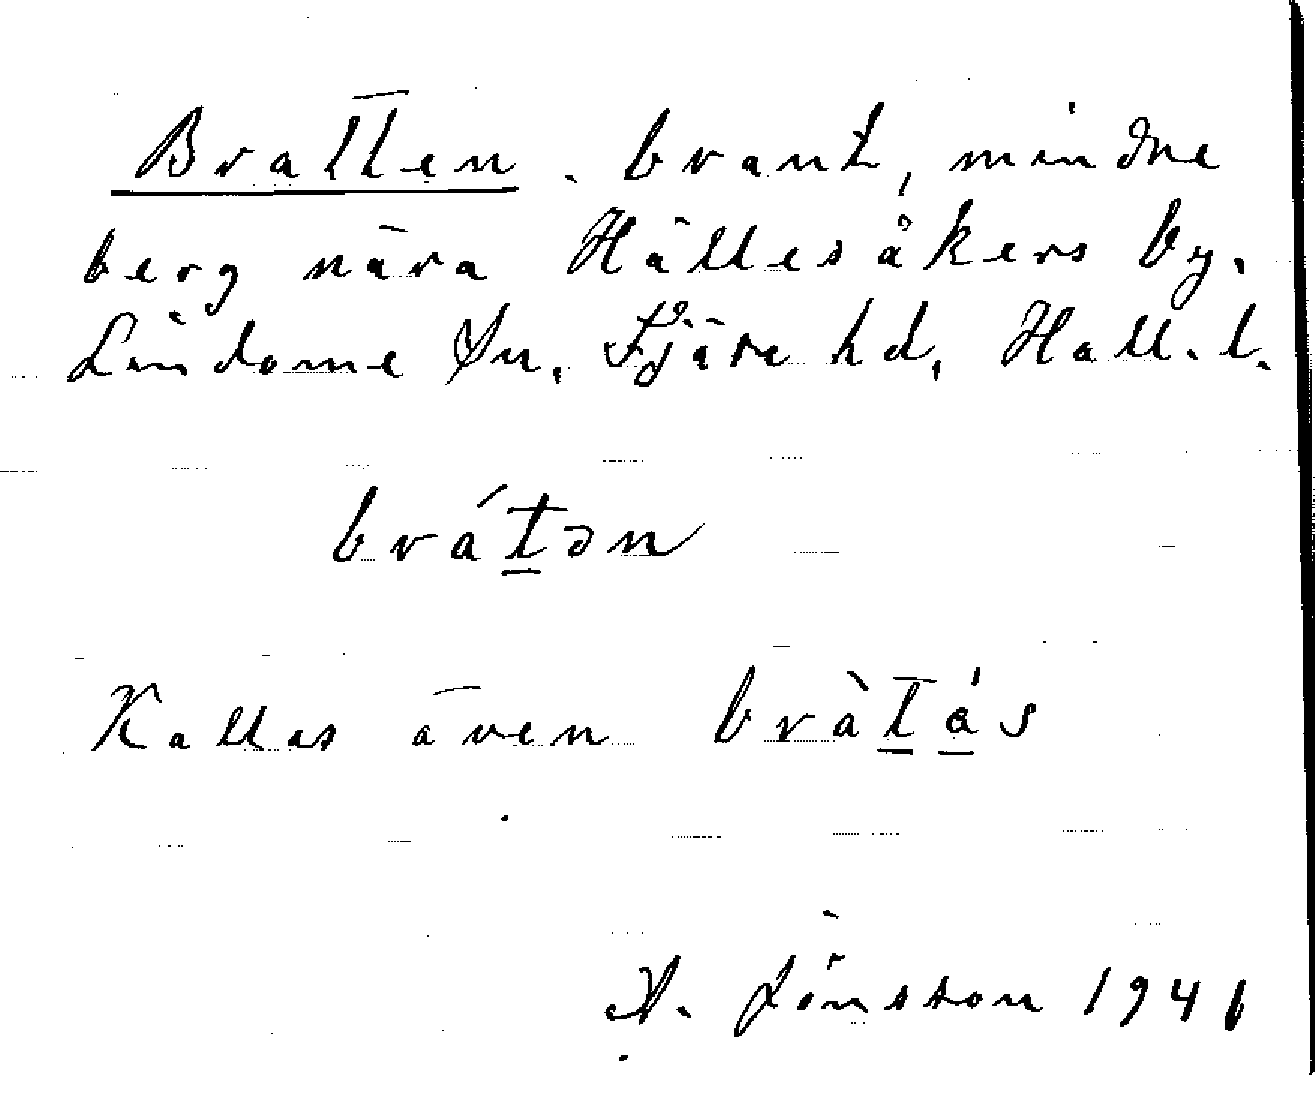 Bratten. brant, mindre
berg nära Hällesåkers by.
Lindome Sn, Fjäre hd, Hall. l.
brát̲ən
Kallas även bràt̲á̲s
A. Jönsson 1946